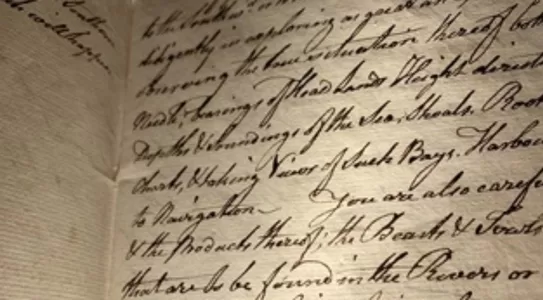 to the Southw
diligently in exploring as great an
observing the true situation thereof both
Needle, bearings of Head Lands Height directi
Depths & Soundings of the Sea, Shoals, Rock
Charts, & taking Views of such Bays, Harbou
to Navigation You are also carefu
& the Products thereof; the Beasts & Fowls
that are to be found in the Rivers or